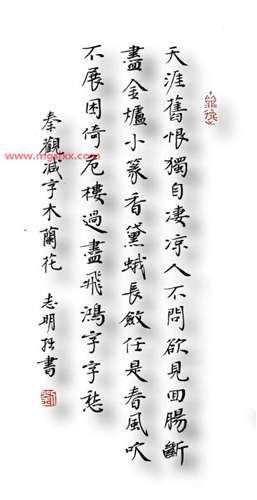 天涯舊恨獨自凄凉人不問欲見囬腸斷
盡金爐小篆香黛蛾長斂任是春風吹
不展困倚危樓過盡飛鴻字字愁
秦觀減字木蘭花 志明拙書